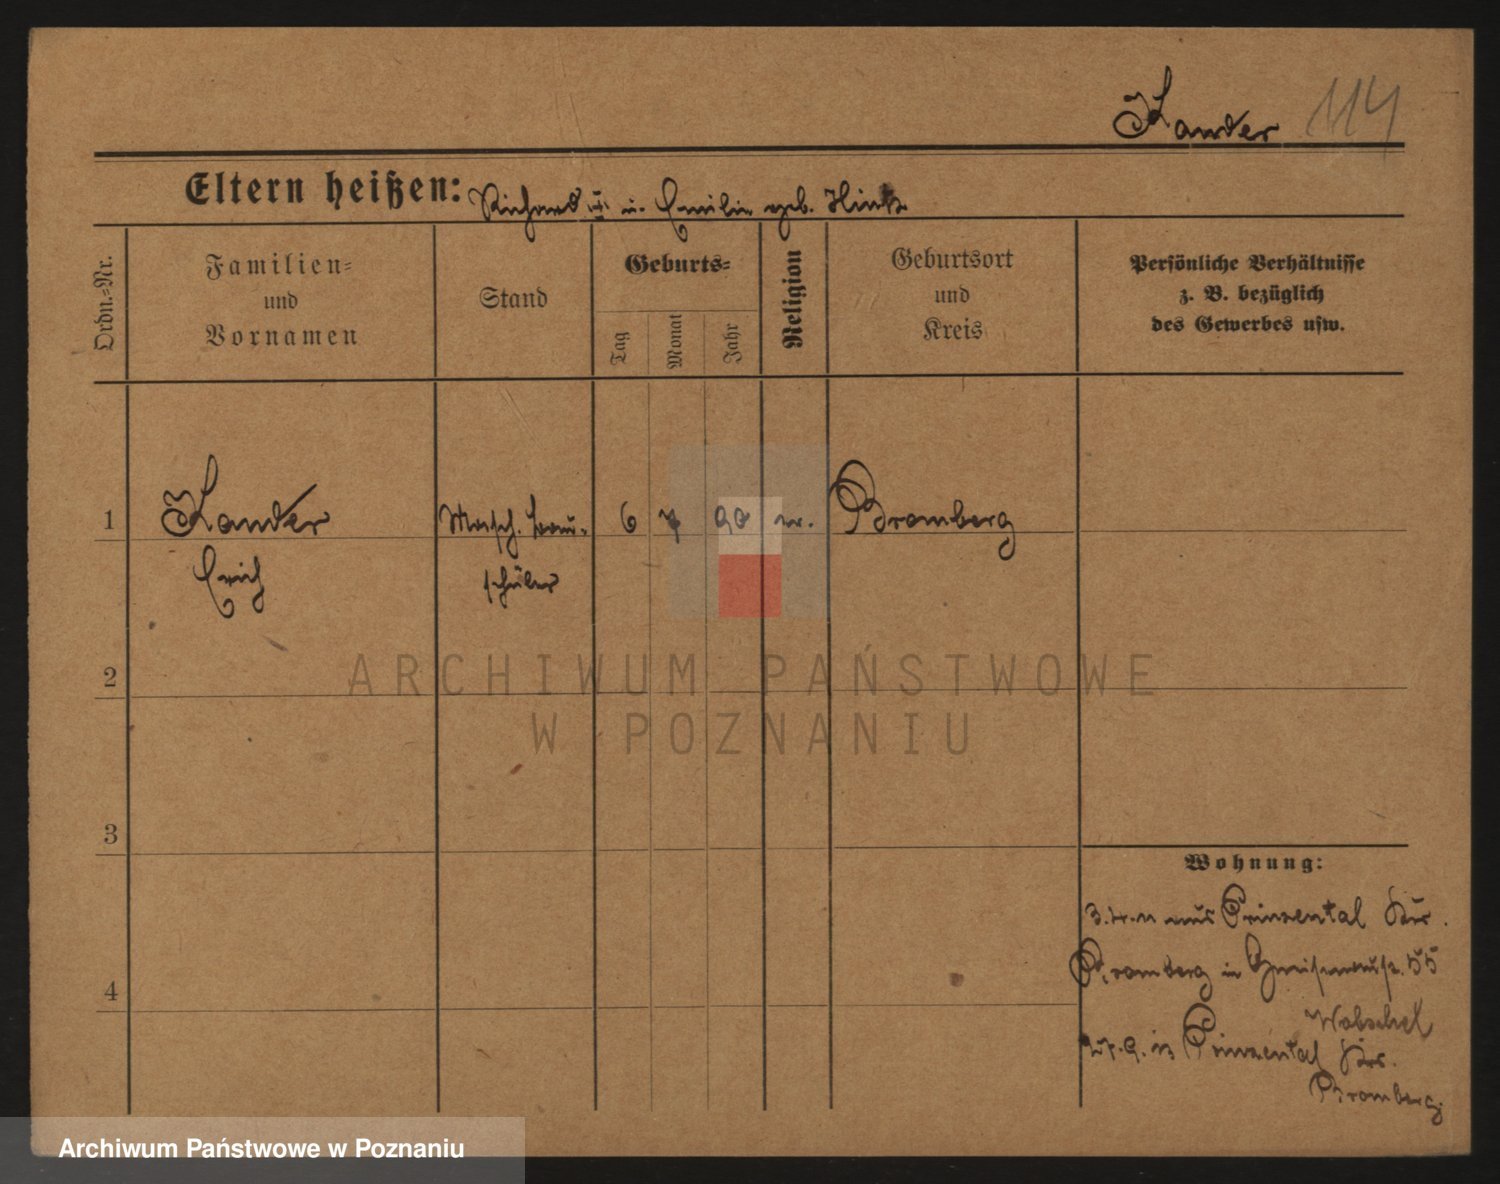 Kander 114
Eltern heißen: Richard u. Emilie geb. Hintz
Ordn.-Nr.
Familien-
und
Vornamen
Stand
Geburts-
Tag
Monat
Jahr
Religion
Geburtsort
und
Kreis
Persönliche Verhältnisse
z. B. bezüglich
des Gewerbes usw.
1 Kander Masch. bau- 6 7 90 ev. Bromberg
Erich schüler
2
ARCHIWUM PAŃSTWOWE
W POZNANIU
3
Wohnung:
aus Prinzental Kr.
4
Bromberg in Gneisenaustr. 55
in Prinzental Krs.
Bromberg.
Archiwum Państwowe w Poznaniu